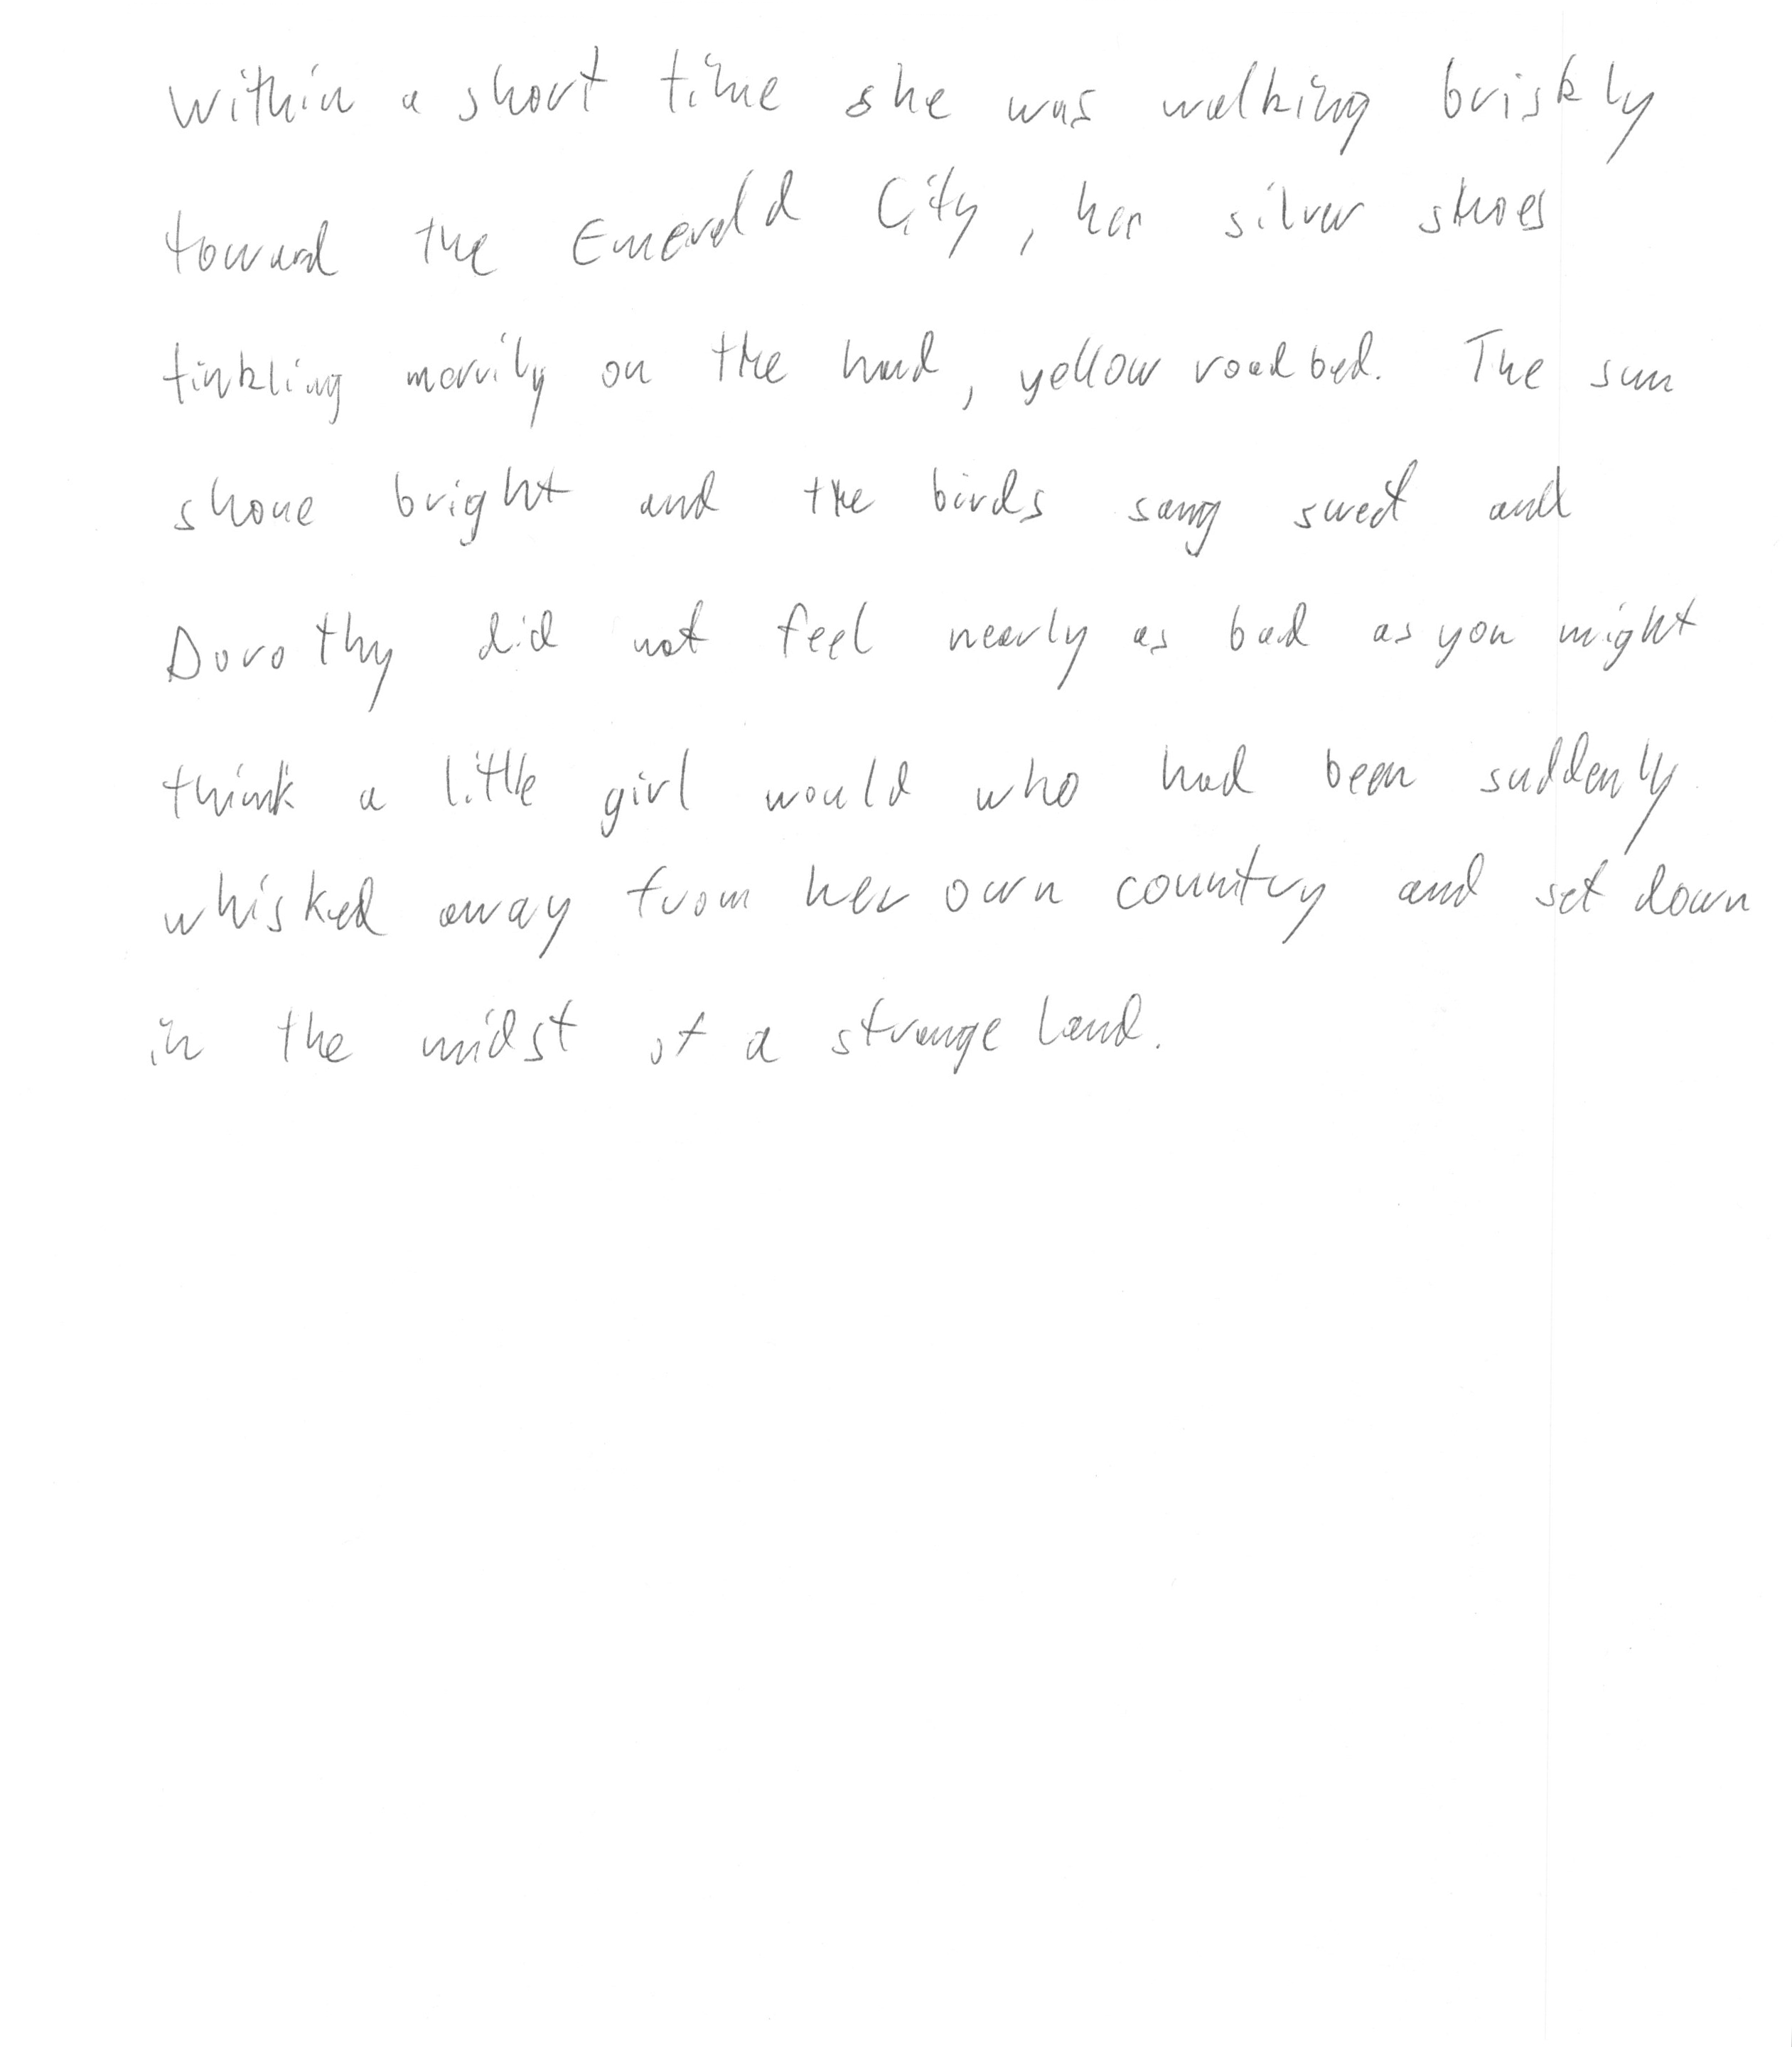 Within a short time she was walking briskly
toward the Emerald City, her silver shoes
tinkling merrily on the hard, yellow roadbed. The sun
shone bright and the birds sang sweet and
Dorothy did not feel nearly as bad as you might
think a little girl would who had been suddenly
whisked away from her own country and set down
in the midst of a strange land.